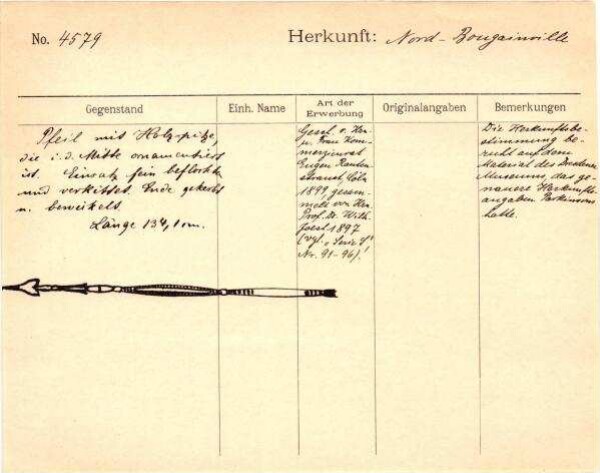 No. 4579
Herkunft: Nord-Bougainville
Gegenstand
Einh. Name
Art der Erwerbung
Originalangaben
Bemerkungen
Pfeil mit Holzspitze,
die i. d. Mitte ornamentiert
ist. Einsatz fein beflochten
und verkittet. Ende gekerbt
u. bewickelt.
Länge 134,1 cm.
Gesch. v. Herrn
u. Frau Kom-
merzienrat
Eugen Rauten-
strauch, Cöln
1899 gesam-
melt von Herrn
Prof. Dr. Wilh.
Joest 1897
(vgl. "Serie I"
Nr. 91-96)!
Die Herkunftsbe-
stimmung be-
ruht auf dem
Material des Dresdener
Museums, das ge-
nauere Herkunfts-
angaben Parkinsons
hatte.